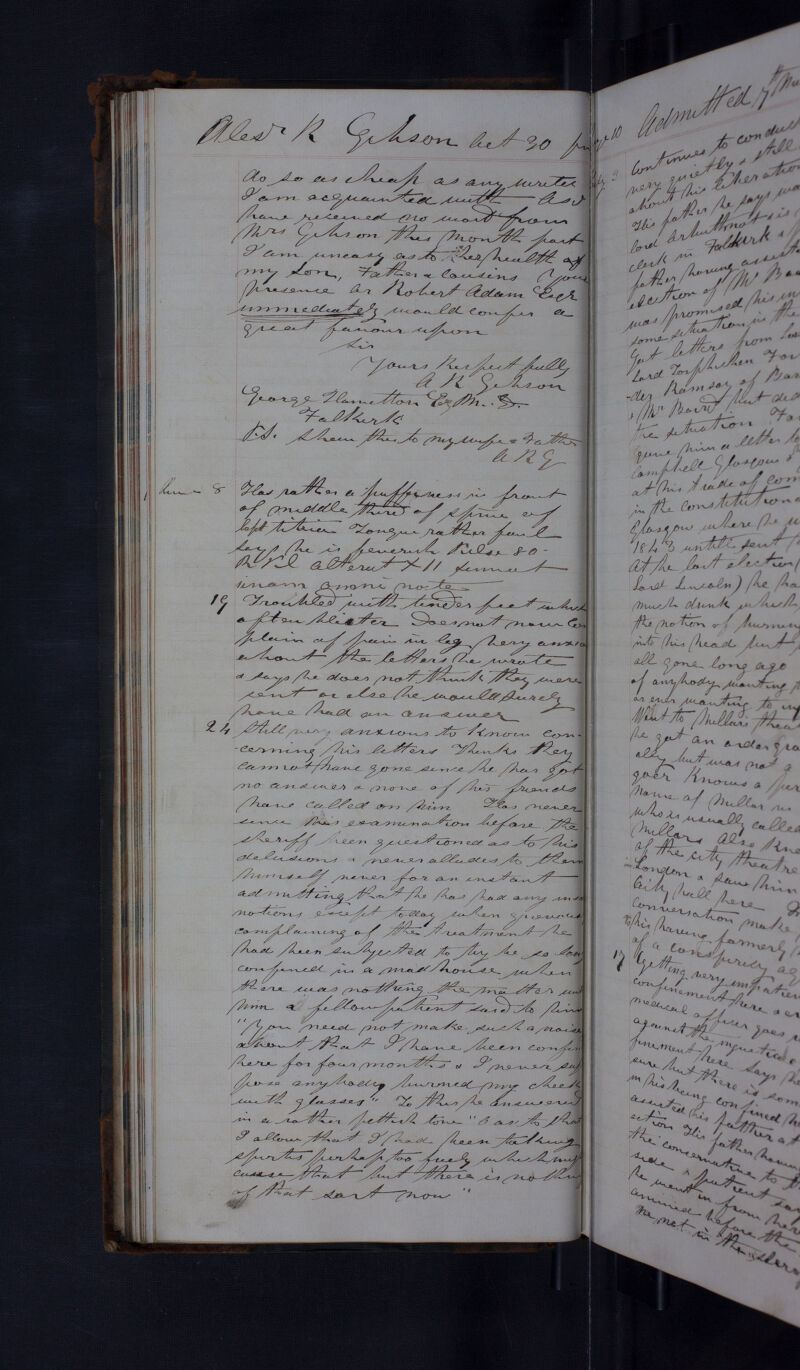 Alexr R Gibson aet 30
do so as cheap as any writer
I am acquainted with As I
have received no word from
Mrs Gibson this month past
I am uneasy as to the health of
my Son, Father & Cousins Your
presence or Robert Adam Esqr
immediately would confer a
great favour upon
Sir
Yours Respectfully
A R Gibson
George Hamilton Esq M.D.
Falkirk
P.S. Shew this to my wife & Father
A R G
June 8 Has rather a puffiness in front
of middle third of spine of
left tibia Tongue rather foul
says he is feverish Pulse 80-
11 sumat
unam omni nocte
19 Troubled with tender feet which
often blister Does not now com
plain of pain in leg Very anxious
about the letters he wrote
& says he does not think they were
sent or else he would surely
have had an answer
24 Still very anxious to know con-
-cerning his letters Thinks they
cannot have gone since he has got
no answer & none of his friends
have called on him Has never
since his examination before the
sheriff been questioned as to his
delusions & never alludes to them
himself never for an instant
admitting that he has had any
notions except today when
complaining of the treatment he
had been subjected to by he so long
confined in a madhouse when
there was nothing the matter with
him a fellow patient said to him
"You need not make such a noise
about that I have been confin
here for four months & I never sup
pose anybody burned my cheek
with glasses" To this he answered
in a rather pettish tone "O as to that
I allow that I had been taking
spirits perhaps too freely which
cause that but there is nothing
of that sort now"
10 Admitted 7th
3 Continues to conduct
very quietly & still
about his liberation
His father he says was
lord Arbuthnot's
clerk in Falkirk &
father having assisted
election of Mr
was promised his
some situation in the
Got letters from
Lord Torphichen
-der Ramsay of
& Mr Baird but did
the situation
gave him a letter to
Campbell Glasgow &
at his trade of
in the constitutional
Glasgow where he
1843 until sent
At the last election
Lord Lincoln) he had
much drunk which
the notion of burning
into his head but
all gone long ago
of anybody wanting
or ever wanting to
Went to Millars theatre
he got an order
ally but was not a
goer Knows a
name of Millar
who is usually called
Millars Also knew
of the city theatre
in London & saw him
City hall here
conversation make
to his having formerly
of a conspiracy
17 Getting very impatient
confinement here
medical officer goes
against the injustice
finement here Says
sure but there is some
in his being confined
assisted his father at
ection His father having
the conservative to
side & patient say
he went in from
amined before the